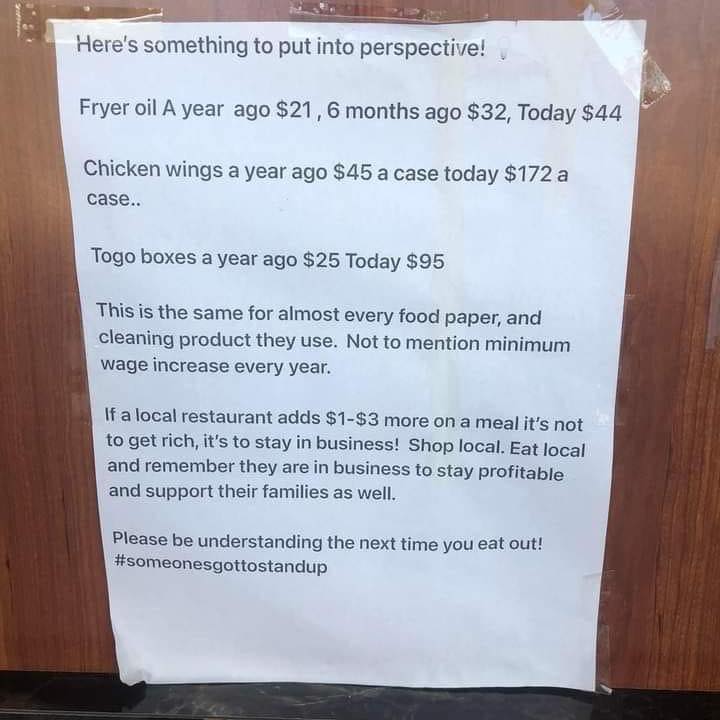 Here's something to put into perspective!
Fryer oil A year ago $21, 6 months ago $32, Today $44
Chicken wings a year ago $45 a case today $172 a
case..
Togo boxes a year ago $25 Today $95
This is the same for almost every food paper, and
cleaning product they use. Not to mention minimum
wage increase every year.
If a local restaurant adds $1-$3 more on a meal it's not
to get rich, it's to stay in business! Shop local. Eat local
and remember they are in business to stay profitable
and support their families as well.
Please be understanding the next time you eat out!
#someonesgottostandup